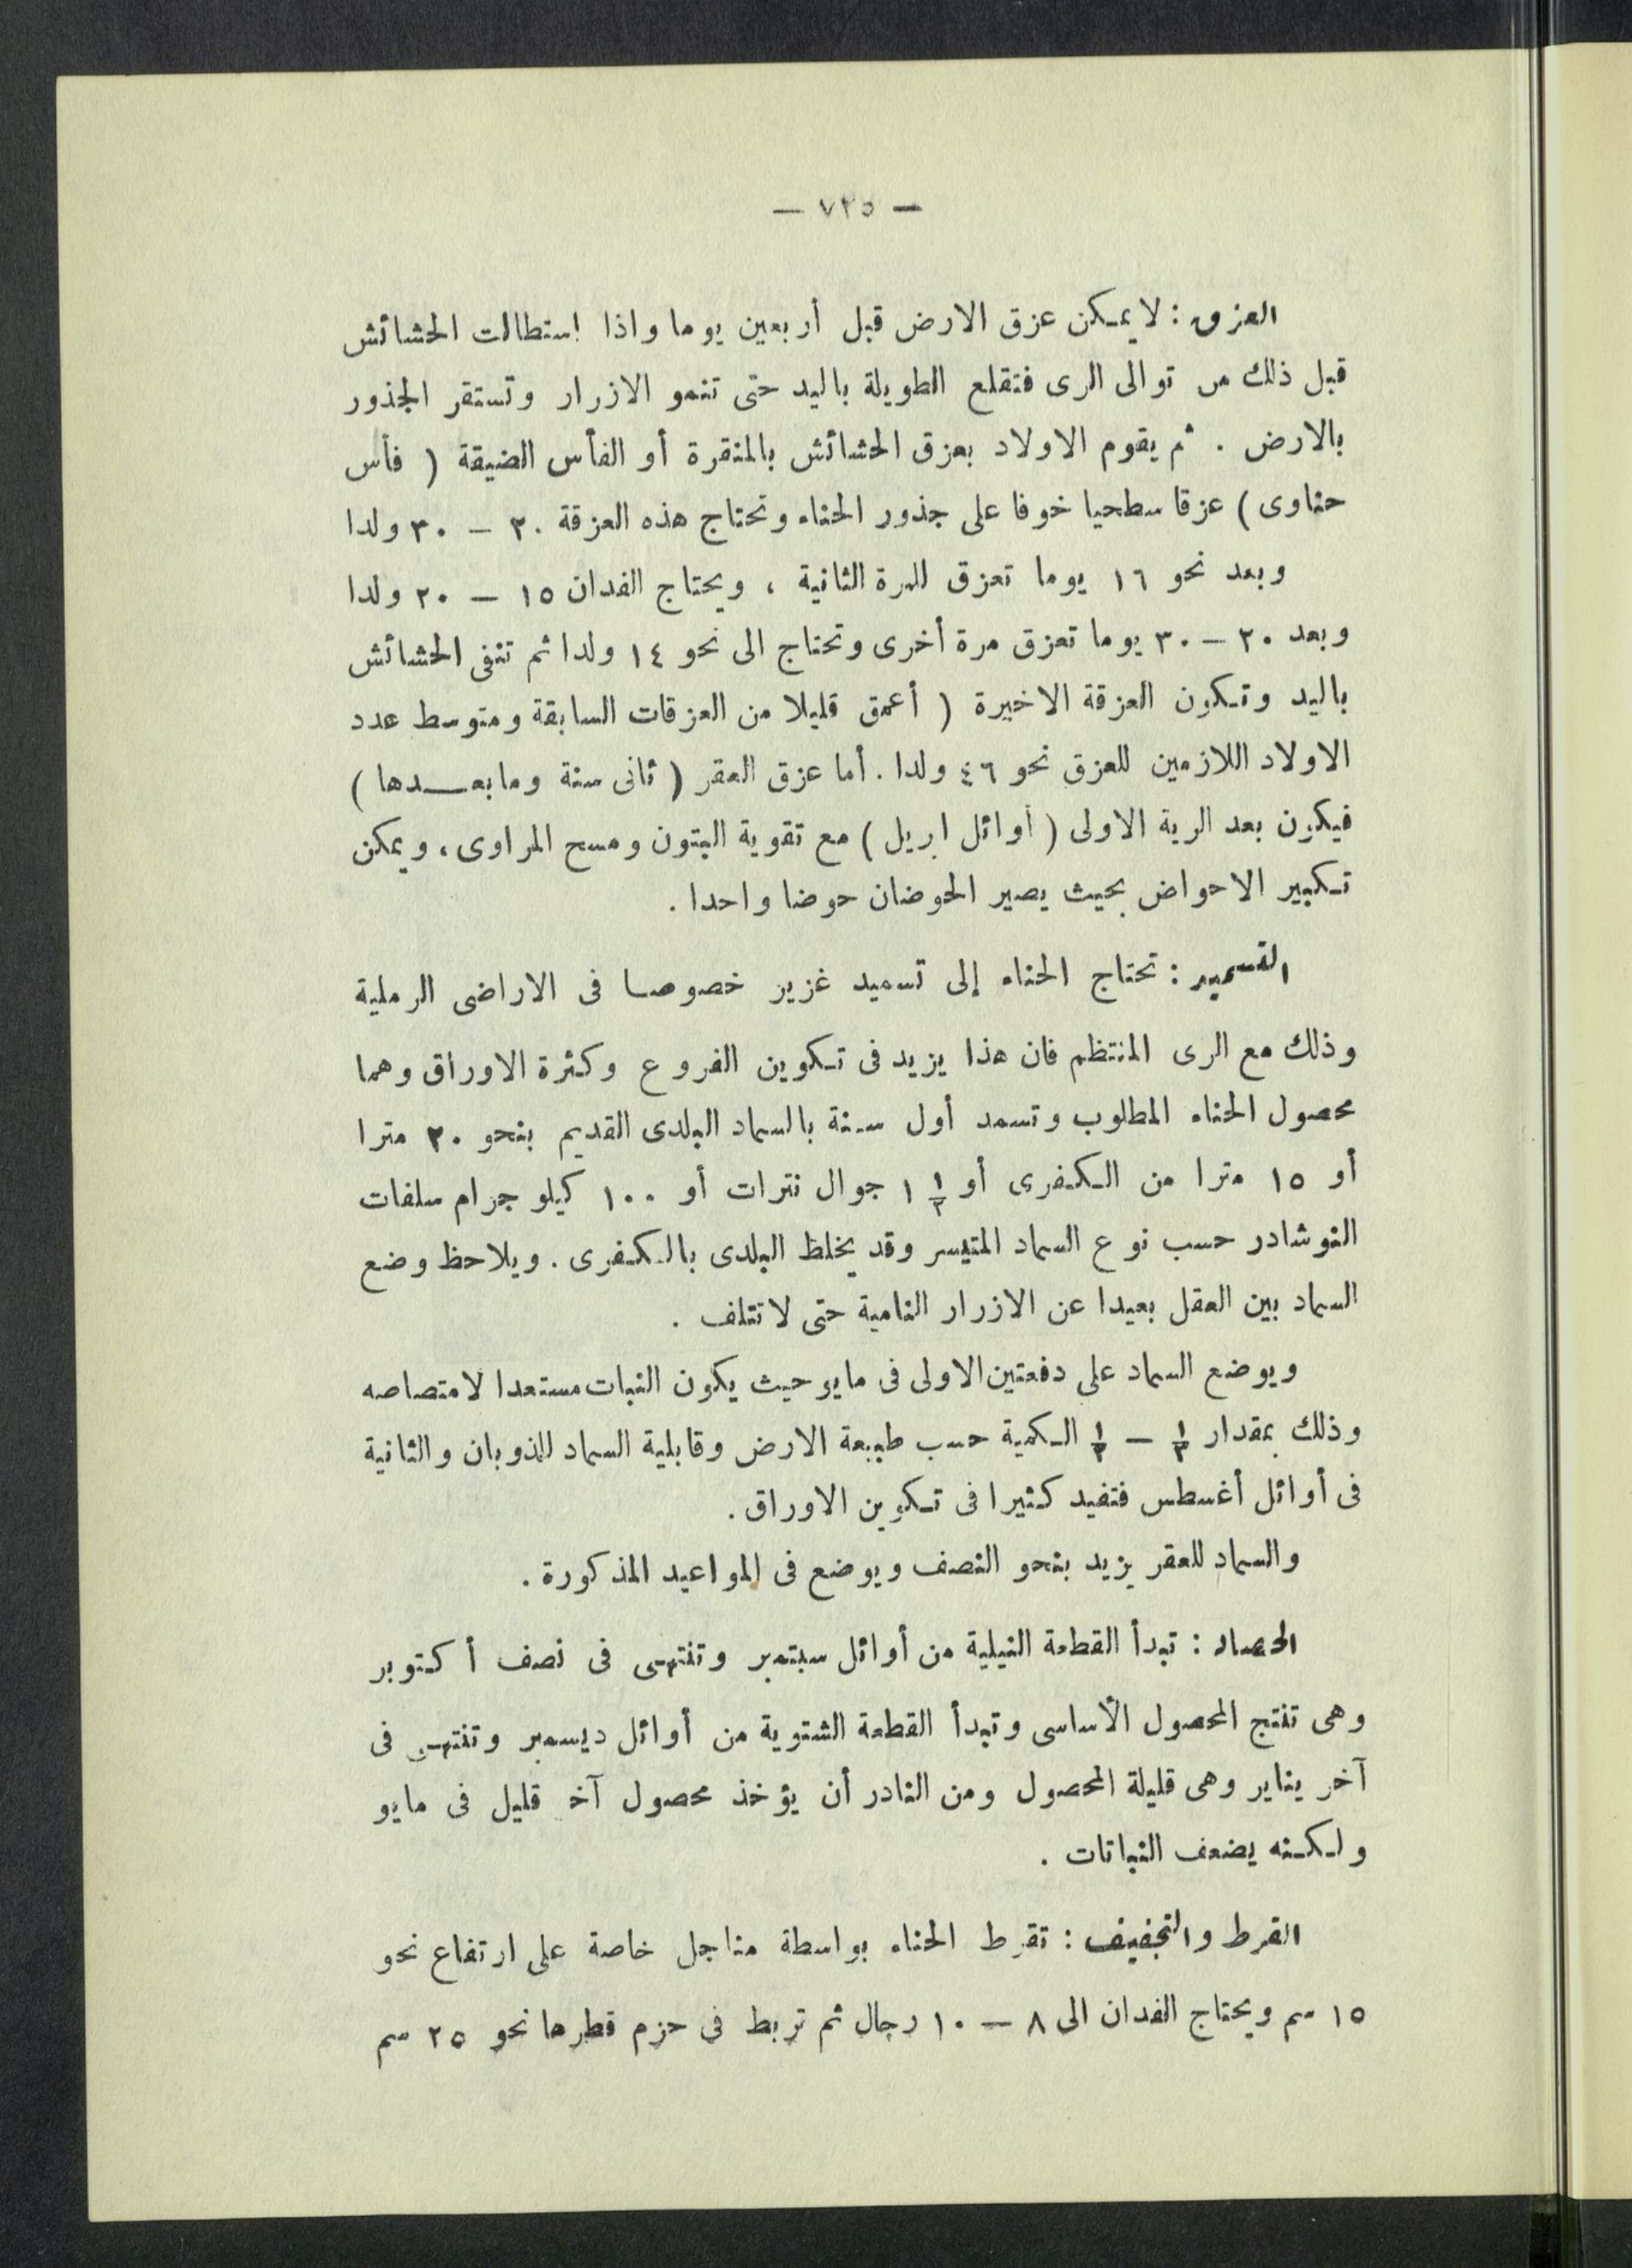 — ٧٣٥ —
العزق : لا يمكن عزق الارض قبل أربعين يوما واذا استطالت الحشائش
قبل ذلك من توالى الرى فتقلع الطويلة باليد حتى تنمو الازرار وتستقر الجذور
بالارض . ثم يقوم الاولاد بعزق الحشائش بالمنقرة أو الفأس الضيقة ( فأس
حناوى ) عزقا سطحيا خوفا على جذور الحناء وتحتاج هذه العزقة ٢٠ — ٣٠ ولدا
وبعد نحو ١٦ يوما تعزق للمرة الثانية ، ويحتاج الفدان ١٥ — ٢٠ ولدا
وبعد ٢٠ — ٣٠ يوما تعزق مرة أخرى وتحتاج الى نحو ١٤ ولدا ثم تنقى الحشائش
باليد وتكون العزقة الاخيرة ( أعمق قليلا من العزقات السابقة ومتوسط عدد
الاولاد اللازمين للعزق نحو ٤٦ ولدا . أما عزق العقر ( ثانى سنة وما بعدها )
فيكون بعد الرية الاولى ( أوائل ابريل ) مع تقوية البتون ومسح المراوى ، ويمكن
تكبير الاحواض بحيث يصير الحوضان حوضا واحدا .
التسميد : تحتاج الحناء إلى تسميد غزير خصوصا فى الاراضى الرملية
وذلك مع الرى المنتظم فان هذا يزيد فى تكوين الفروع وكثرة الاوراق وهما
محصول الحناء المطلوب وتسمد أول سنة بالسماد البلدى القديم بنحو ٢٠ مترا
أو ١٥ مترا من الكفرى أو ١ ١/٢ جوال نترات أو ١٠٠ كيلو جرام سلفات
النوشادر حسب نوع السماد المتيسر وقد يخلط البلدى بالكفرى . ويلاحظ وضع
السماد بين العقل بعيدا عن الازرار النامية حتى لا تتلف .
ويوضع السماد على دفعتين الاولى فى مايو حيث يكون النبات مستعدا لامتصاصه
وذلك بمقدار ١/٣ — ١/٢ الكمية حسب طبيعة الارض وقابلية السماد للذوبان والثانية
فى أوائل أغسطس فتفيد كثيرا فى تكوين الاوراق .
والسماد للعقر يزيد بنحو النصف ويوضع فى المواعيد المذكورة .
الحصاد : تبدأ القطعة النيلية من أوائل سبتمبر وتنتهى فى نصف أكتوبر
وهى تنتج المحصول الأساسى وتبدأ القطعة الشتوية من أوائل ديسمبر وتنتهى فى
آخر يناير وهى قليلة المحصول ومن النادر أن يؤخذ محصول آخر قليل فى مايو
ولكنه يضعف النباتات .
القرط والتجفيف : تقرط الحناء بواسطة مناجل خاصة على ارتفاع نحو
١٥ سم ويحتاج الفدان الى ٨ — ١٠ رجال ثم تربط فى حزم قطرها نحو ٢٥ سم